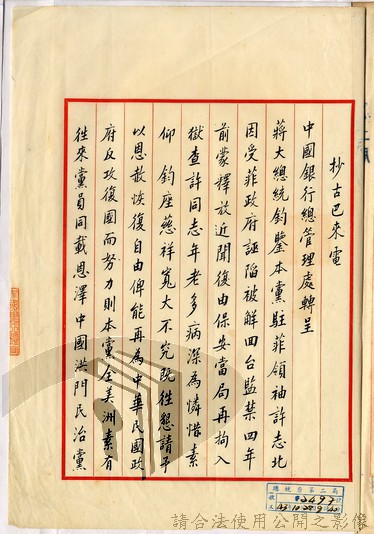 抄古巴來電
中國銀行總管理處轉呈
蔣大總統鈞鑒本黨駐菲領袖許志北
因受菲政府誣陷被解回台監禁四年
前蒙釋放近聞復由保安當局再拘入
獄查許同志年老多病深為憐惜素
仰 鈞座慈祥寬大不究既往懇請予
以恩赦恢復自由俾能再為中華民國政
府反攻復國而努力則本黨全美洲素有
往來黨員同戴恩澤中國洪門民治黨
總統府第二局
請合法使用公開之影像